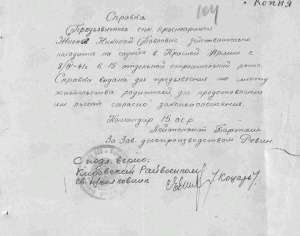 Копия
104
Справка
Предъявитель сего красноармеец
Николай Павлович действительно
находится на службе в Красной Армии с
в 15 отдельной строительной роте
Справка выдана для предъявления по месту
жительства родителей для предоставления
им льгот согласно законоположения.
Командир 15 оср
За Зав. делопроизводством Ревин
С подл. верно:
Кировский Райвоенком